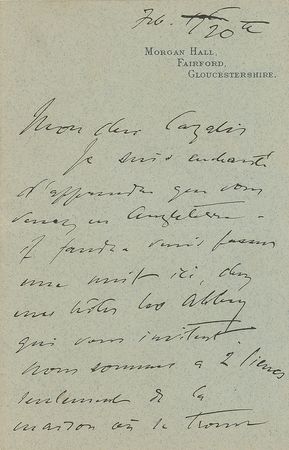 Feb. 20th
MORGAN HALL,
FAIRFORD,
GLOUCESTERSHIRE.
Mon cher Cazalis
Je suis enchanté
d'apprendre que vous
venez en Angleterre -
il faudra venir passer
une nuit ici, chez
mes hôtes les Abbey
qui vous invitent.
Nous sommes à 2 lieues
seulement de la
maison où se trouve